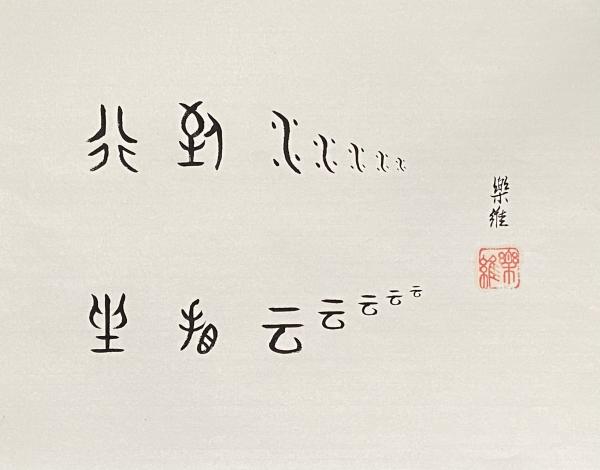 行到水水水水水
坐看云云云云云
樂維
樂維